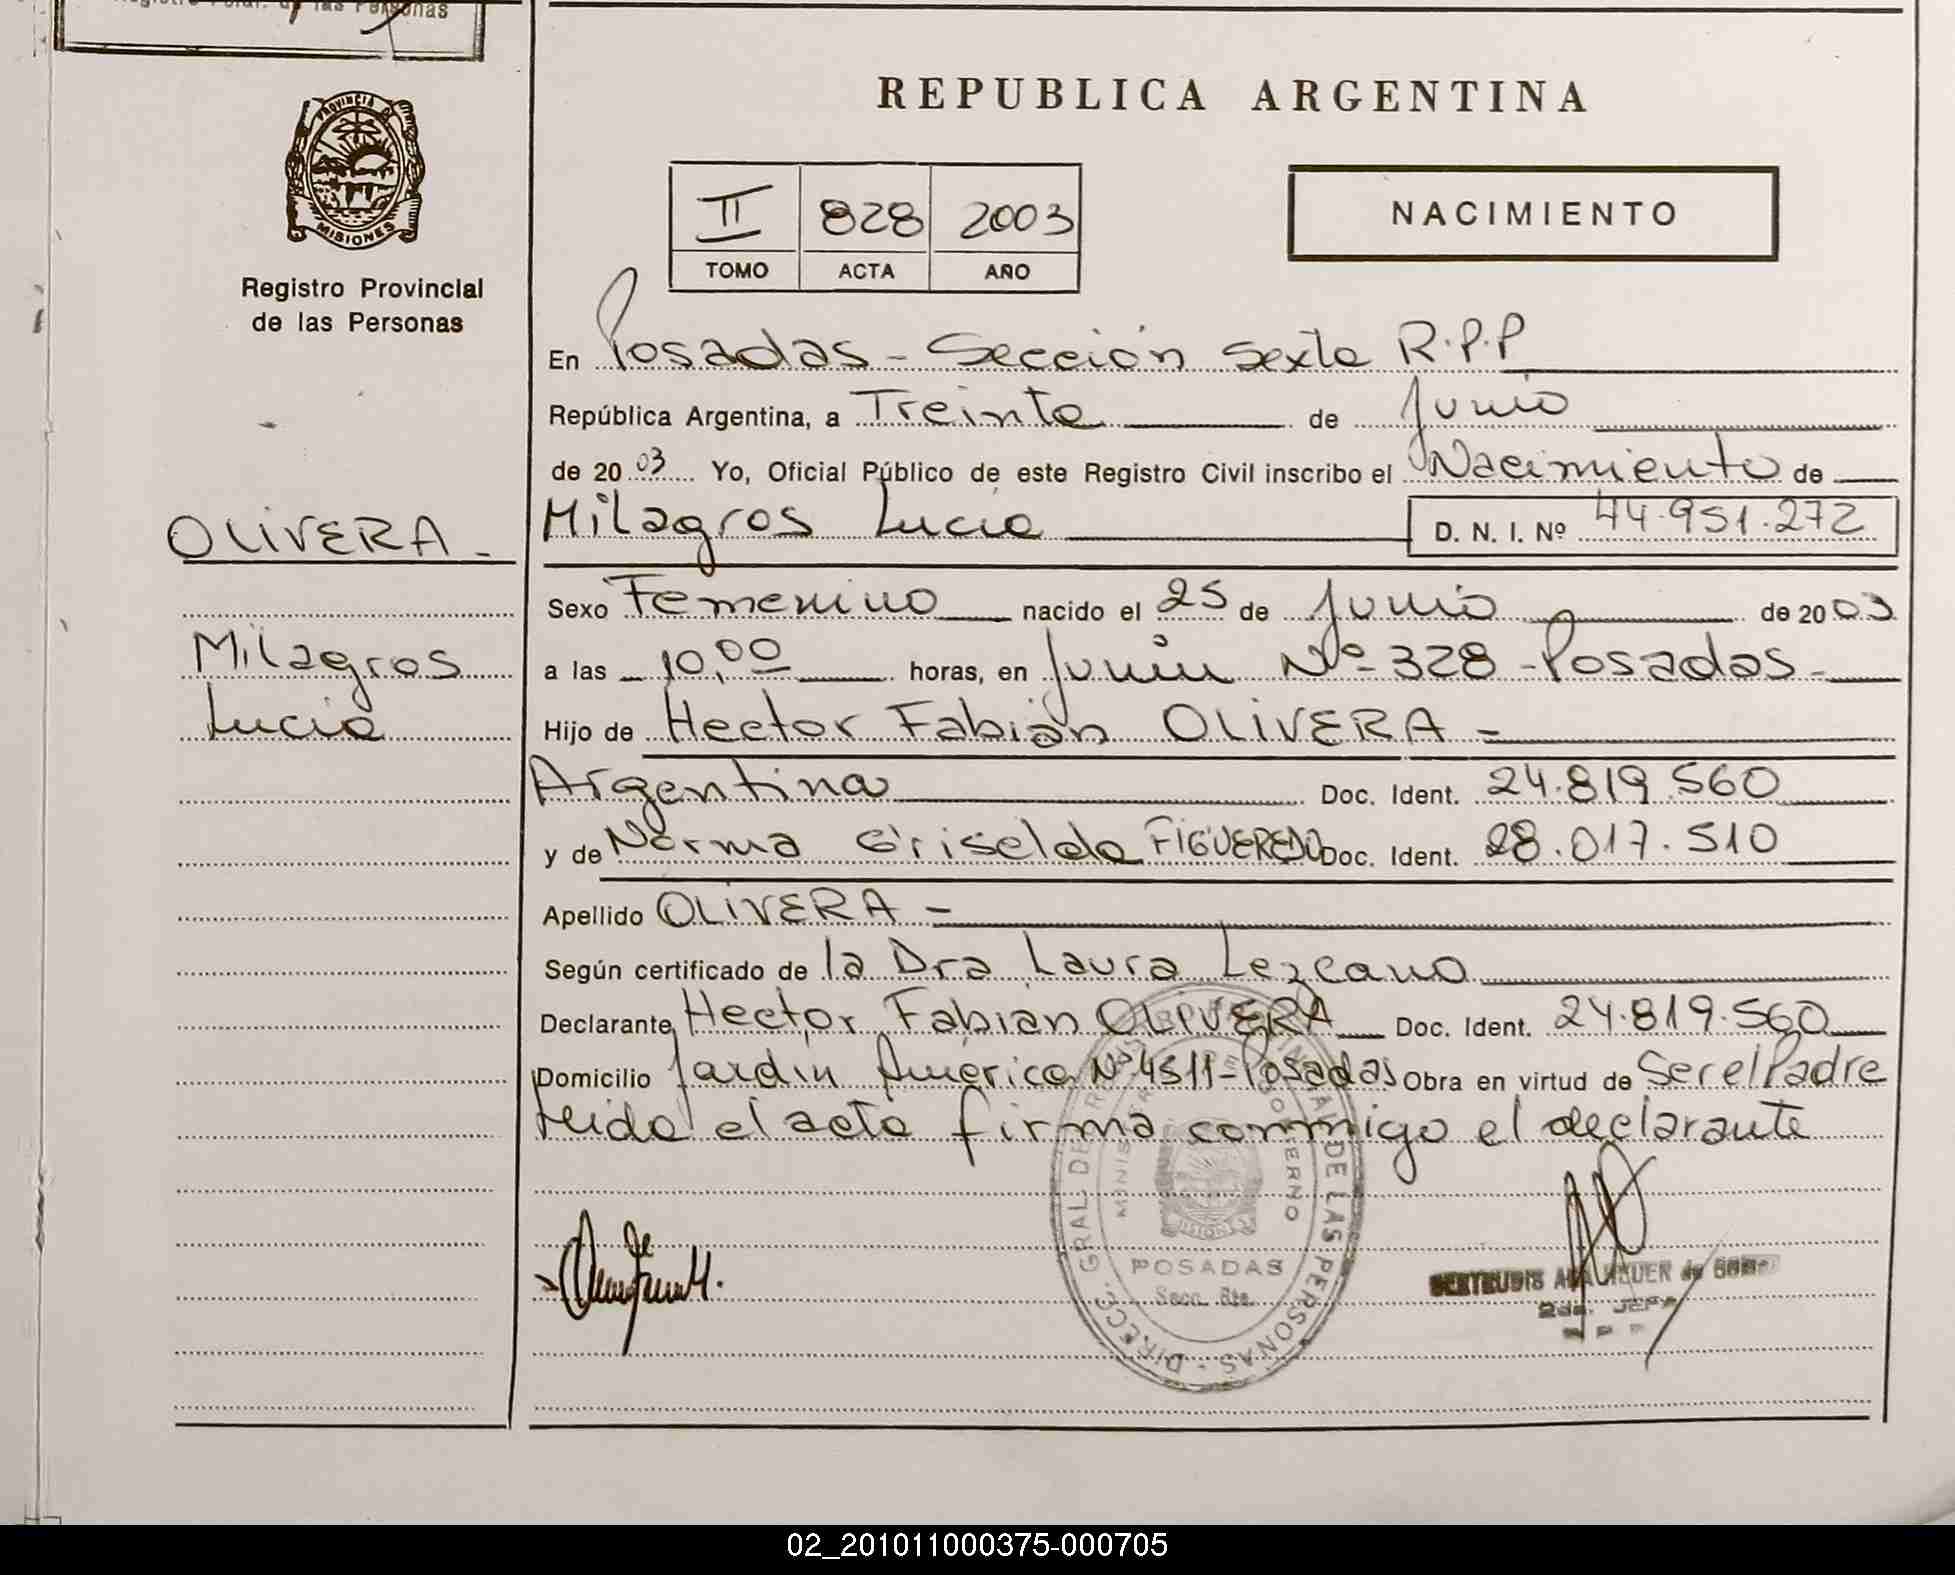 de las Personas
REPUBLICA ARGENTINA
PROVINCIA DE
MISIONES
Registro Provincial
de las Personas
II 828 2003
TOMO ACTA AÑO
NACIMIENTO
En Posadas - Sección Sexta R.P.P
República Argentina, a Treinta de Junio
de 2003 Yo, Oficial Público de este Registro Civil inscribo el Nacimiento de
OLIVERA -
Milagros Lucia D. N. I. Nº 44.951.272
Sexo Femenino nacido el 25 de Junio de 2003
Milagros
a las 10,00 horas, en Junín Nº 328 - Posadas -
Lucia
Hijo de Hector Fabián OLIVERA -
Argentina Doc. Ident. 24.819.560
y de Norma Griselda FIGUEREDO Doc. Ident. 28.017.510
Apellido OLIVERA -
Según certificado de la Dra Laura Lezcano
Declarante Hector Fabián OLIVERA Doc. Ident. 24.819.560
Domicilio Jardín América Nº 4511 - Posadas Obra en virtud de Ser el Padre
leida el acta firma conmigo el declarante
DIRECC. GRAL DE DE LAS PERSONAS
GOBIERNO
POSADAS
Secc. 6ta.
GERTRUDIS de
2da. JEFA
02_201011000375-000705